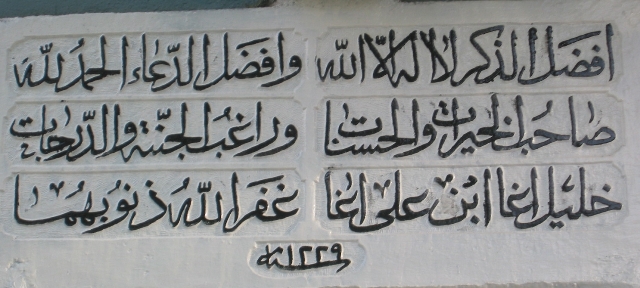 افضل الذكر لا اله الا الله وافضل الدعاء الحمد لله
صاحب الخيرات والحسنات وراغب الجنة والدرجات
خليل اغا ابن على اغا غفر الله ذنوبهما
سنة ١٢٢٩